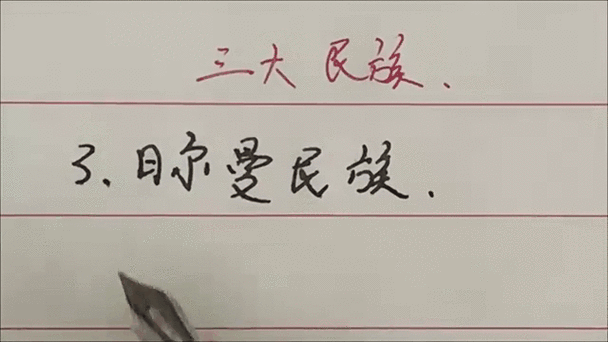 三大民族.
3、日尔曼民族.